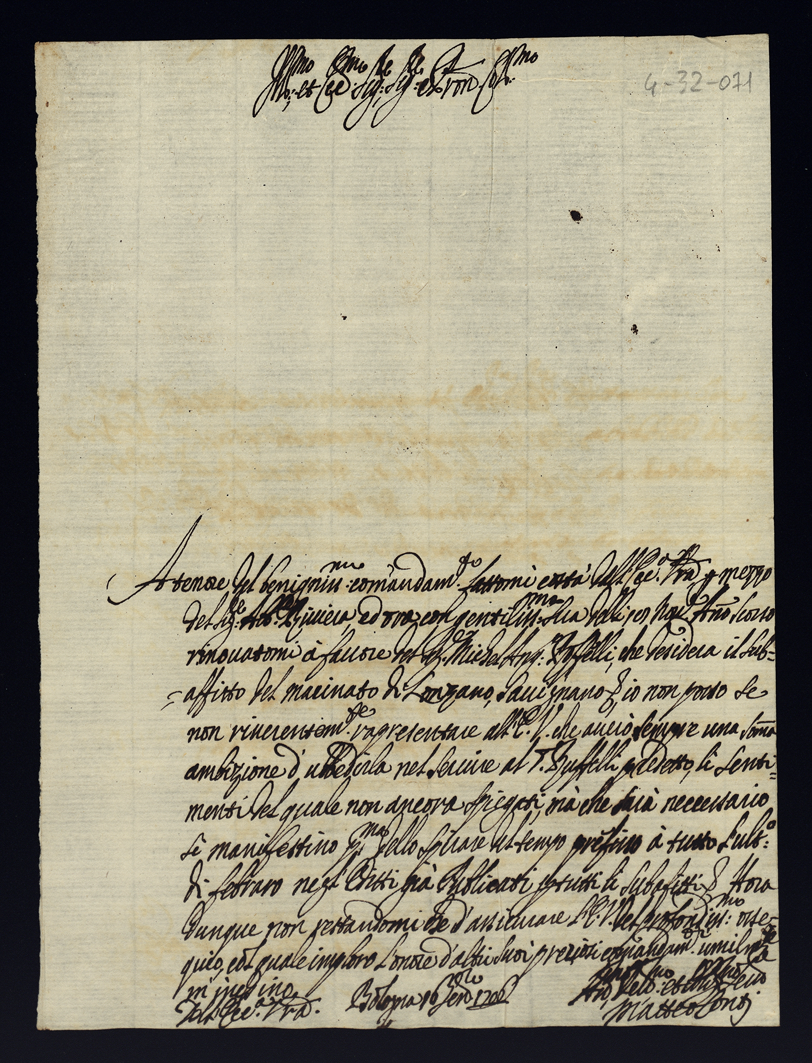 Ill.mo et Ecc.mo Sig.re Sig.re e Pron Col.mo
4-32-071
A tenore del benigniss.mo comandam.to fattomi dall' Ecc.a Vra p mezzo
del Sig.re Ab.e Riviera, ed ora con gentiliss.ma sua delli Anno scorso
rinovatomi à favore del S.r Michel Ang.o Buffelli, che desidera il sub=
affitto del macinato di Lonzano, Savignano & io non posso se
non riverentem.te rapresentare all' E. V. che averò sempre una somma
ambizione d'ubbedirla nel servire al S.r Buffelli predetto li senti=
menti del quale non ancora spiegati, sia che sarà necessario
si manifestino p.ma dello spirare del tempo prefisso à tutto l'ult.o
di febraro negl' Editti già Publicati p tutti li subafitti & Hora
dunque non restandomi che d'assicurare l' E. V. del profondiss.mo osse=
quio, col quale imploro l'onore d'altri suoi preziosi comandam.ti umilm.te
m'inchino
Dell' Ecc.a Vra. Bologna 16 Gen.ro 1706
Um.mo Dev.mo et Obblig.mo Ser.e
Matteo Conti